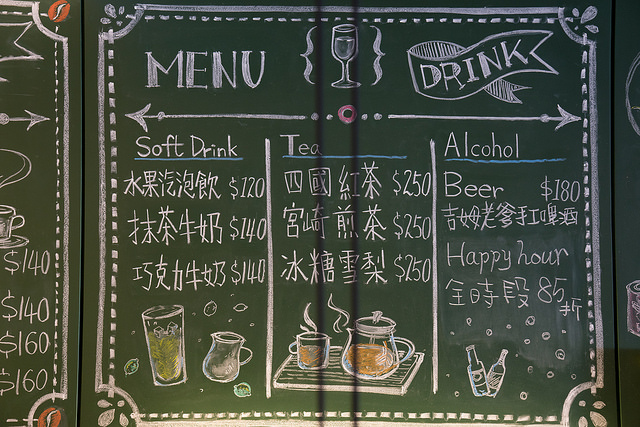 MENU
DRINK
Soft Drink
水果汽泡飲 $120
抹茶牛奶 $140
巧克力牛奶 $140
Tea
四國紅茶 $250
宮崎煎茶 $250
冰糖雪梨 $250
Alcohol
Beer $180
吉姆老爹手工啤酒
Happy hour
全時段 85折
$140
$140
$160
$160